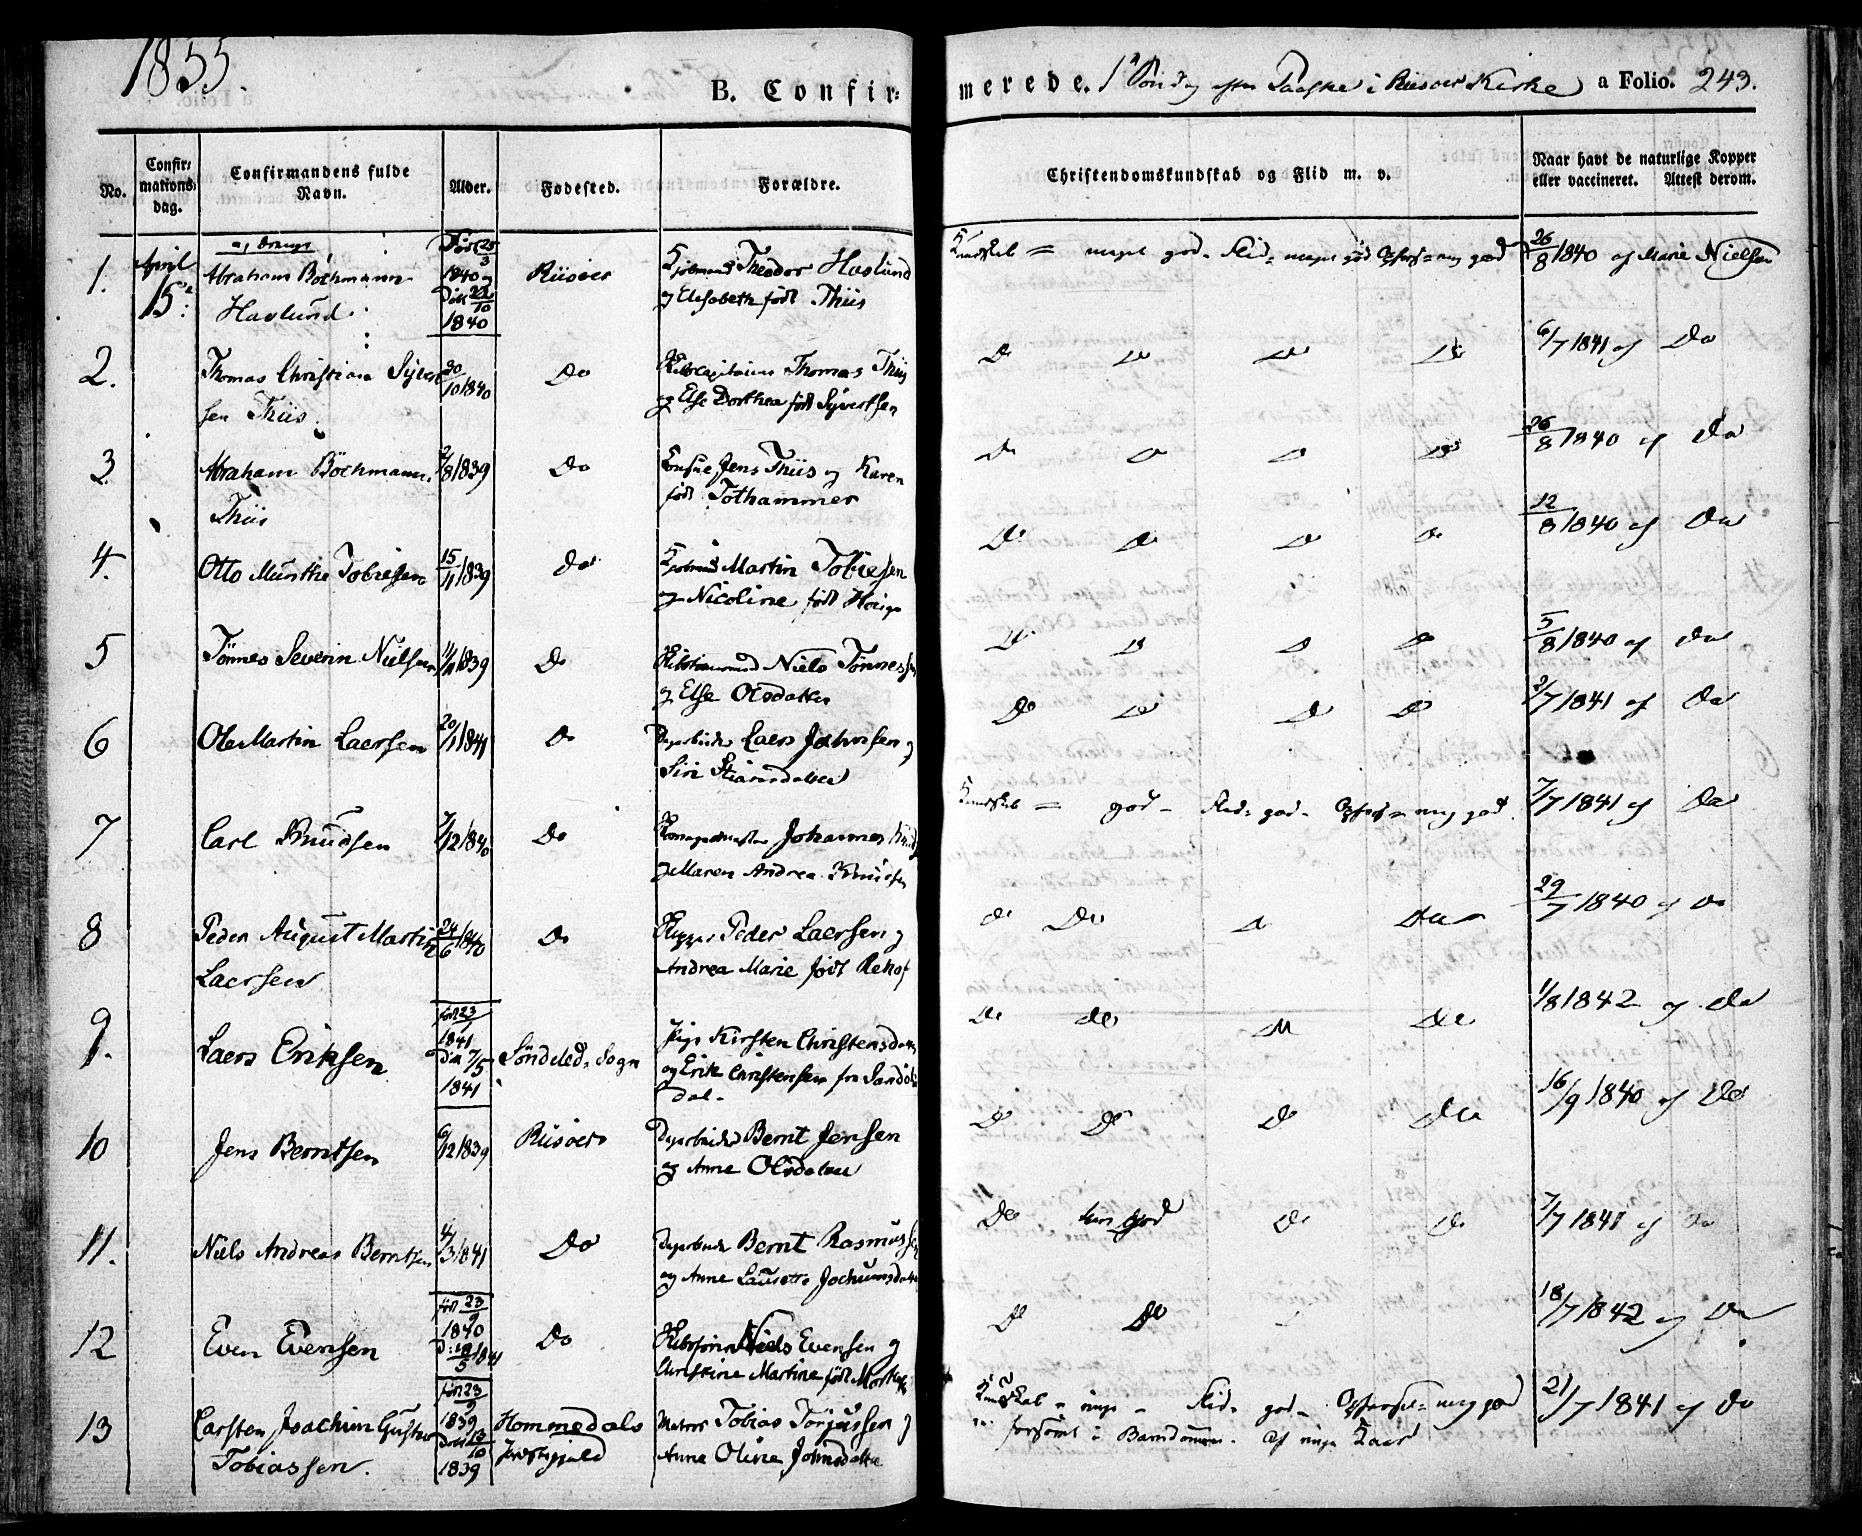 1855.
B. Confirmerede. 1ste Søndag efter Paaske i Riisøer Kirke a Folio. 243.
No. Confirmationsdag. Confirmandens fulde Navn. Alder. Fødested. Forældre. Christendomskundskab og Flid m. v. Naar havt de naturlige Kopper eller vaccineret. Attest derom.
a, Drenge
1. April 15de Abraham Bøchmann Havlund Født 25/3 1840 og Døbt 22/10 1840 Riisøer Kjøbmand Theodor Havlund
og Elisabeth født Thiis
Kundskab = meget god. Flid = meget god Opførs = meg god 26/8 1840 af Marie Nielsen
2. Thomas Christian Syvertsen Thiis. 30/10 1840 Do Thomas Thiis
og Else Dorthea født Syvertsen
Do Do Do Do 6/7 1841 af Do
3. Abraham Bøchmann Thiis 2/8 1839 Do Consul Jens Thiis og Karen
født Tothammer
Do Do Do Do 26/8 1840 af Do
4. Otto Munthe Tobiesen 15/11 1839 Do Kjøbmd Martin Tobiesen
og Nicoline født
Do Do Do Do 12/8 1840 af Do
5 Tønnes Severin Nielsen 11/11 1839 Do Niels Tønnessen
og Else Olsdatter
Do Do Do Do 5/8 1840 af Do
6 Ole Martin Laersen 20/1 1841 Do Dagarbeider Laers Jochumsen og
Siri
Do Do Do Do 2/7 1841 af Do
7 Carl Knudsen 7/12 1840 Do Johannes
og Maren Andrea Knudsen
Kundskab = god - Flid = god - Opførs = meg god. 7/7 1841 af Do
8 Peder August Martin Laersen 24/6 1840 Do Skipper Peder Laersen og
Andrea Marie født
Do Do Do Do 29/7 1840 af Do
9. Laers Eriksen født 23/1 1841 Døbt 7/5 1841 Søndeleds Sogn Pige Kirsten Christensdatter
og Erik Christensen fra
dal.
Do Do Do Do 1/8 1842 af Do
10 Jens Berntsen 6/12 1839 Riisøer Dagarbeider Bernt Jensen
og Anne Olsdatter
Do Do Do Do 16/9 1840 af Do
11. Niels Andreas Berntsen 4/3 1841 Do Dagarbeider Bernt Rasmussen
og Anne Lausette Jochumsdatter
Do temg god Do Do 7/7 1841 af Do
12 Even Evensen født 23/9 1840 D: 18/5 1841 Do Niels Evensen og
Christine Martine født
Do Do 18/7 1842 af Do
13 Carsten Joachim Gustav Tobiassen. født 23/9 1839 Døbt 13/10 1839 Hommedals Præstegjæld Matros Tobias Torjussen og
Anne Oline Johnsdatter
Kundskab = ringe - Flid = god - Opførsel = meg god
forsømt i Barndommen. Af ringe Kaar 21/7 1841 af Do